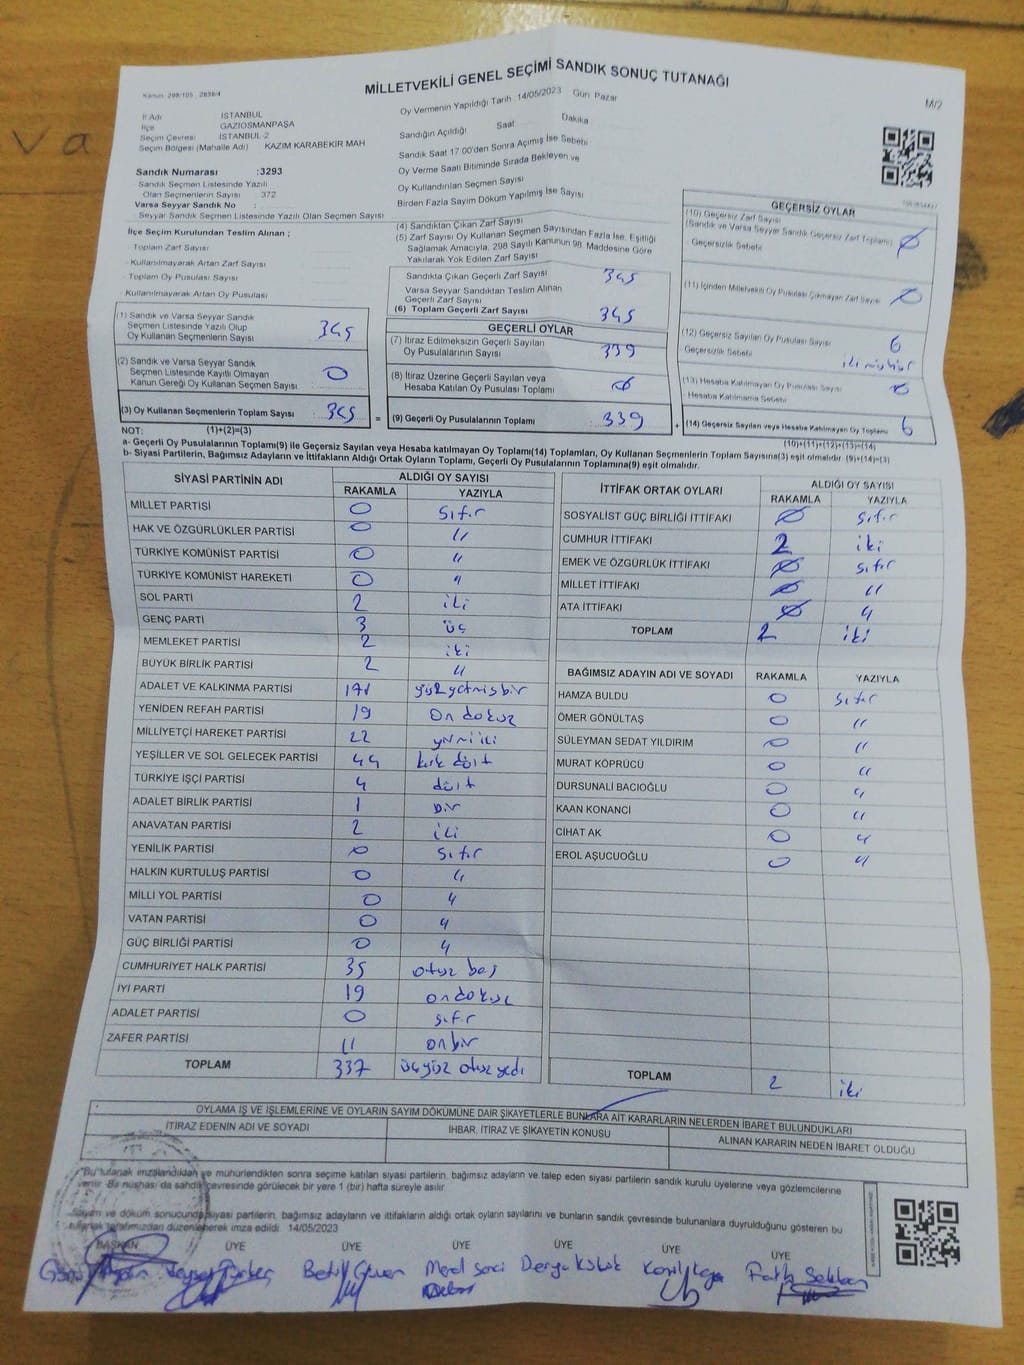 MİLLETVEKİLİ GENEL SEÇİMİ SANDIK SONUÇ TUTANAĞI
Kanun: 298/105 , 2839/4
M/2
İl Adı İSTANBUL
İlçe GAZİOSMANPAŞA
Seçim Çevresi İSTANBUL-2
Seçim Bölgesi (Mahalle Adı) KAZIM KARABEKİR MAH
Sandık Numarası :3293
Sandık Seçmen Listesinde Yazılı
Olan Seçmenlerin Sayısı : 372
Varsa Seyyar Sandık No :
Seyyar Sandık Seçmen Listesinde Yazılı Olan Seçmen Sayısı
İlçe Seçim Kurulundan Teslim Alınan ;
- Toplam Zarf Sayısı
- Kullanılmayarak Artan Zarf Sayısı
- Toplam Oy Pusulası Sayısı
- Kullanılmayarak Artan Oy Pusulası
Oy Vermenin Yapıldığı Tarih : 14/05/2023 Gün: Pazar
Sandığın Açıldığı Saat Dakika
Sandık Saat 17.00'den Sonra Açımış İse Sebebi
Oy Verme Saati Bitiminde Sırada Bekleyen ve
Oy Kullandırılan Seçmen Sayısı
Birden Fazla Sayım Döküm Yapılmış İse Sayısı
(1) Sandık ve Varsa Seyyar Sandık
Seçmen Listesinde Yazılı Olup
Oy Kullanan Seçmenlerin Sayısı 345
(2) Sandık ve Varsa Seyyar Sandık
Seçmen Listesinde Kayıtlı Olmayan
Kanun Gereği Oy Kullanan Seçmen Sayısı 0
(3) Oy Kullanan Seçmenlerin Toplam Sayısı 345 =
(4) Sandıktan Çıkan Zarf Sayısı
(5) Zarf Sayısı Oy Kullanan Seçmen Sayısından Fazla İse, Eşitliği
Sağlamak Amacıyla, 298 Sayılı Kanunun 98. Maddesine Göre
Yakılarak Yok Edilen Zarf Sayısı
Sandıkta Çıkan Geçerli Zarf Sayısı 345
Varsa Seyyar Sandıktan Teslim Alınan
Geçerli Zarf Sayısı
(6) Toplam Geçerli Zarf Sayısı 345
GEÇERLİ OYLAR
(7) İtiraz Edilmeksizin Geçerli Sayılan
Oy Pusulalarının Sayısı 339
(8) İtiraz Üzerine Geçerli Sayılan veya
Hesaba Katılan Oy Pusulası Toplamı Ø
(9) Geçerli Oy Pusulalarının Toplamı 339 +
GEÇERSİZ OYLAR
(10) Geçersiz Zarf Sayısı
(Sandık ve Varsa Seyyar Sandık Geçersiz Zarf Toplamı) Ø
Geçersizlik Sebebi
(11) İçinden Milletvekili Oy Pusulası Çıkmayan Zarf Sayısı Ø
(12) Geçersiz Sayılan Oy Pusulası Sayısı 6
Geçersizlik Sebebi iki mühür
(13) Hesaba Katılmayan Oy Pusulası Sayısı Ø
Hesaba Katılmama Sebebi
(14) Geçersiz Sayılan veya Hesaba Katılmayan Oy Toplamı 6
NOT: (1)+(2)=(3) (10)+(11)+(12)+(13)=(14)
a- Geçerli Oy Pusulalarının Toplamı(9) ile Geçersiz Sayılan veya Hesaba katılmayan Oy Toplamı(14) Toplamları, Oy Kullanan Seçmenlerin Toplam Sayısına(3) eşit olmalıdır. (9)+(14)=(3)
b- Siyasi Partilerin, Bağımsız Adayların ve İttifakların Aldığı Ortak Oyların Toplamı, Geçerli Oy Pusulalarının Toplamına(9) eşit olmalıdır.
SİYASİ PARTİNİN ADI ALDIĞI OY SAYISI
RAKAMLA YAZIYLA
MİLLET PARTİSİ 0 Sıfır
HAK VE ÖZGÜRLÜKLER PARTİSİ 0 "
TÜRKİYE KOMÜNİST PARTİSİ 0 "
TÜRKİYE KOMÜNİST HAREKETİ 0 "
SOL PARTİ 2 iki
GENÇ PARTİ 3 üç
MEMLEKET PARTİSİ 2 iki
BÜYÜK BİRLİK PARTİSİ 2 "
ADALET VE KALKINMA PARTİSİ 171 yüz yetmiş bir
YENİDEN REFAH PARTİSİ 19 on dokuz
MİLLİYETÇİ HAREKET PARTİSİ 22 yirmi iki
YEŞİLLER VE SOL GELECEK PARTİSİ 44 kırk dört
TÜRKİYE İŞÇİ PARTİSİ 4 dört
ADALET BİRLİK PARTİSİ 1 bir
ANAVATAN PARTİSİ 2 iki
YENİLİK PARTİSİ 0 sıfır
HALKIN KURTULUŞ PARTİSİ 0 "
MİLLİ YOL PARTİSİ 0 "
VATAN PARTİSİ 0 "
GÜÇ BİRLİĞİ PARTİSİ 0 "
CUMHURİYET HALK PARTİSİ 35 otuz beş
İYİ PARTİ 19 on dokuz
ADALET PARTİSİ 0 sıfır
ZAFER PARTİSİ 11 on bir
TOPLAM 337 üçyüz otuz yedi
İTTİFAK ORTAK OYLARI ALDIĞI OY SAYISI
RAKAMLA YAZIYLA
SOSYALİST GÜÇ BİRLİĞİ İTTİFAKI Ø sıfır
CUMHUR İTTİFAKI 2 iki
EMEK VE ÖZGÜRLÜK İTTİFAKI Ø sıfır
MİLLET İTTİFAKI Ø "
ATA İTTİFAKI Ø "
TOPLAM 2 iki
BAĞIMSIZ ADAYIN ADI VE SOYADI RAKAMLA YAZIYLA
HAMZA BULDU 0 Sıfır
ÖMER GÖNÜLTAŞ 0 "
SÜLEYMAN SEDAT YILDIRIM 0 "
MURAT KÖPRÜCÜ 0 "
DURSUNALİ BACIOĞLU 0 "
KAAN KONANCİ 0 "
CİHAT AK 0 "
EROL AŞUCUOĞLU 0 "
TOPLAM 2 iki
OYLAMA İŞ VE İŞLEMLERİNE VE OYLARIN SAYIM DÖKÜMÜNE DAİR ŞİKAYETLERLE BUNLARA AİT KARARLARIN NELERDEN İBARET BULUNDUKLARI
İTİRAZ EDENİN ADI VE SOYADI İHBAR, İTİRAZ VE ŞİKAYETİN KONUSU ALINAN KARARIN NEDEN İBARET OLDUĞU
Bu tutanak imzalandıktan ve mühürlendikten sonra seçime katılan siyasi partilerin, bağımsız adayların ve talep eden siyasi partilerin sandık kurulu üyelerine veya gözlemcilerine
verilir. Bir nüshası da sandık çevresinde görülecek bir yere 1 (bir) hafta süreyle asılır.
Sayım ve döküm sonucunda siyasi partilerin, bağımsız adayların ve ittifakların aldığı ortak oyların sayılarını ve bunların sandık çevresinde bulunanlara duyrulduğunu gösteren bu
tutanak tarafımızdan düzenlenerek imza edildi. 14/05/2023
BAŞKAN ÜYE ÜYE ÜYE ÜYE ÜYE ÜYE
Derya Kabak Fatih
va